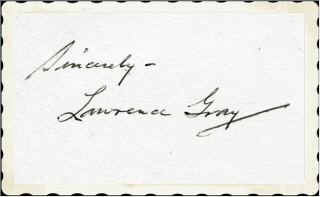 Sincerely -
Lawrence Gray